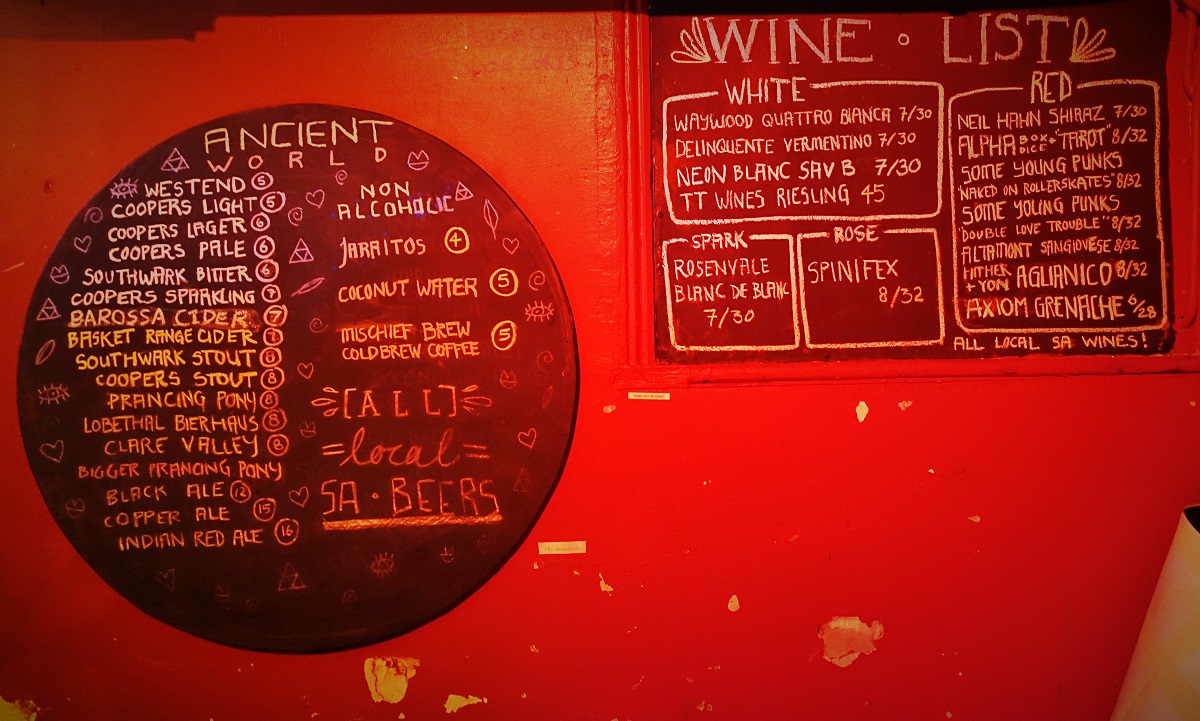 ANCIENT
WORLD
WESTEND 5
COOPERS LIGHT 5
COOPERS LAGER 6
COOPERS PALE 6
SOUTHWARK BITTER 6
COOPERS SPARKLING 7
BAROSSA CIDER 7
BASKET RANGE CIDER 7
SOUTHWARK STOUT 8
COOPERS STOUT 8
PRANCING PONY 8
LOBETHAL BIERHAUS 8
CLARE VALLEY 8
BIGGER PRANCING PONY
BLACK ALE 12
COPPER ALE 15
INDIAN RED ALE 16
NON
ALCOHOLIC
JARRITOS 4
COCONUT WATER 5
MISCHIEF BREW
COLDBREW COFFEE 5
[ALL]
=local=
SA·BEERS
WINE · LIST
WHITE
WAYWOOD QUATTRO BIANCA 7/30
DELINQUENTE VERMENTINO 7/30
NEON BLANC SAV B 7/30
TT WINES RIESLING 45
SPARK
ROSENVALE
BLANC DE BLANC
7/30
ROSE
SPINIFEX
8/32
RED
NEIL HAHN SHIRAZ 7/30
ALPHA BOX + DICE "TAROT" 8/32
SOME YOUNG PUNKS
"NAKED ON ROLLERSKATES" 8/32
SOME YOUNG PUNKS
"DOUBLE LOVE TROUBLE" 8/32
ALTAMONT SANGIOVESE 8/32
HITHER + YON AGLIANICO 8/32
AXIOM GRENACHE 6/28
ALL LOCAL SA WINES!